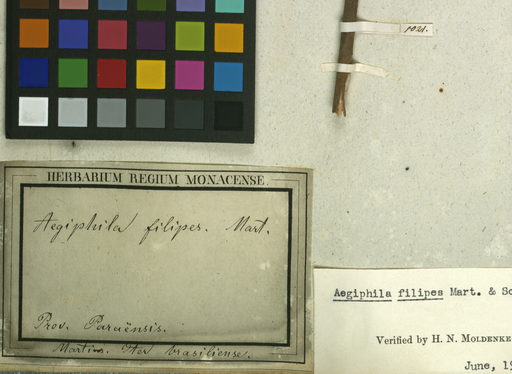 1021.
HERBARIUM REGIUM MONACENSE.
Aegiphila filipes. Mart.
Prov. Paraënsis.
Martius. Iter brasiliense.
Aegiphila filipes Mart. & Sc
Verified by H. N. MOLDENKE
June, 19